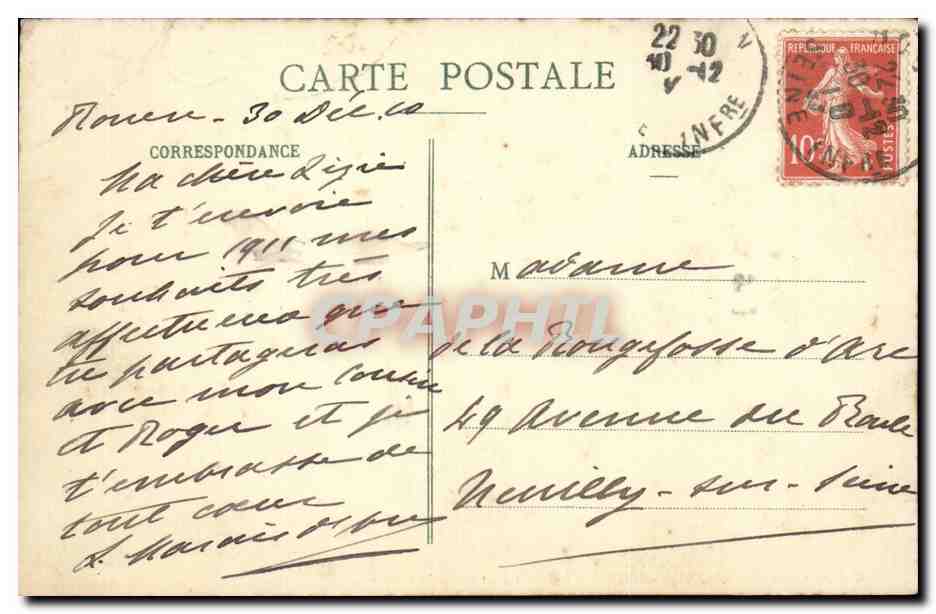 CARTE POSTALE
Rouen - 30 Déc. 10
CORRESPONDANCE
Ma chère Lizzie
Je t'envoie
pour 1911 mes
souhaits très
affectueux que
tu partageras
avec mon cousin
et Roger et je
t'embrasse de
tout cœur
L. Marais
ADRESSE
Madame
de la Rougefosse d'Arc
49 Avenue du Roule
Neuilly-sur-Seine
22 30
10 -12
INFRE
REPUBLIQUE FRANCAISE
10c
POSTES
22 30
30 -12
10
SEINE INFRE
CPAPHIL